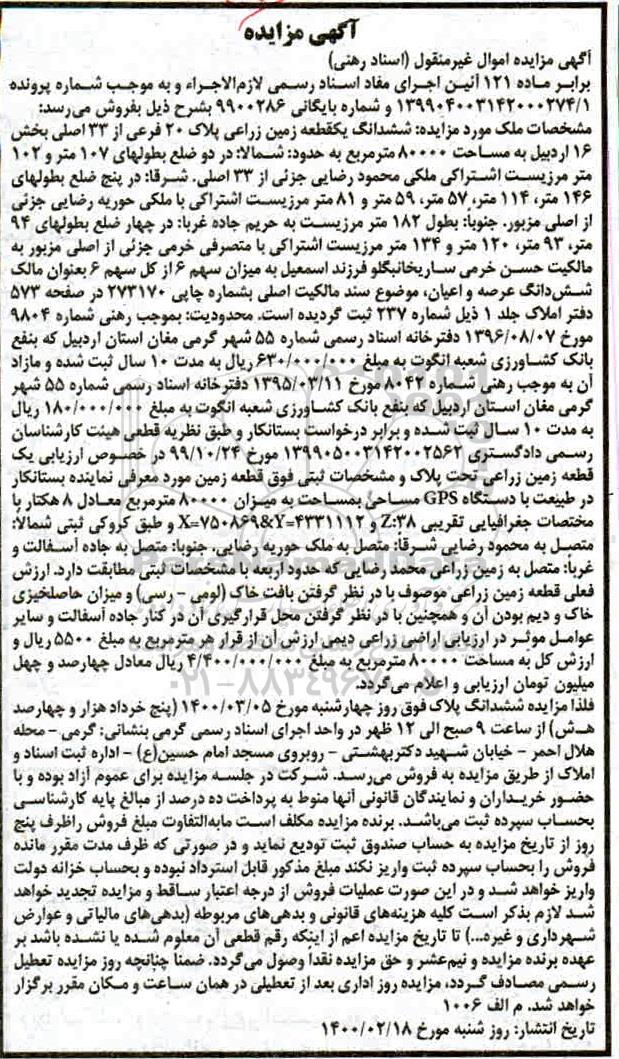 آگهی مزایده
آگهی مزایده اموال غیرمنقول (اسناد رهنی)
برابر ماده ۱۲۱ آئین اجرای مفاد اسناد رسمی لازم‌الاجراء و به موجب شماره پرونده
۱۳۹۹۰۴۰۰۳۱۴۲۰۰۰۲۷۴/۱ و شماره بایگانی ۹۹۰۰۲۸۶ بشرح ذیل بفروش می‌رسد:
مشخصات ملک مورد مزایده: ششدانگ یکقطعه زمین زراعی پلاک ۲۰ فرعی از ۳۳ اصلی بخش
۱۶ اردبیل به مساحت ۸۰۰۰۰ مترمربع به حدود: شمالا: در دو ضلع بطولهای ۱۰۷ متر و ۱۰۲
متر مرزیست اشتراکی ملکی محمود رضایی جزئی از ۳۳ اصلی. شرقا: در پنج ضلع بطولهای
۱۴۶ متر، ۱۱۴ متر، ۵۷ متر، ۵۹ متر و ۸۱ متر مرزیست اشتراکی با ملکی حوریه رضایی جزئی
از اصلی مزبور. جنوبا: بطول ۱۸۲ متر مرزیست به حریم جاده غربا: در چهار ضلع بطولهای ۹۴
متر، ۹۳ متر، ۱۲۰ متر و ۱۳۴ متر مرزیست اشتراکی با متصرفی خرمی جزئی از اصلی مزبور به
مالکیت حسن خرمی ساریخانبگلو فرزند اسمعیل به میزان سهم ۶ از کل سهم ۶ بعنوان مالک
شش‌دانگ عرصه و اعیان، موضوع سند مالکیت اصلی بشماره چاپی ۲۷۳۱۷۰ در صفحه ۵۷۳
دفتر املاک جلد ۱ ذیل شماره ۲۳۷ ثبت گردیده است. محدودیت: بموجب رهنی شماره ۹۸۰۴
مورخ ۱۳۹۶/۰۸/۰۷ دفترخانه اسناد رسمی شماره ۵۵ شهر گرمی مغان استان اردبیل که بنفع
بانک کشاورزی شعبه انگوت به مبلغ ۶۳۰/۰۰۰/۰۰۰ ریال به مدت ۱۰ سال ثبت شده و مازاد
آن به موجب رهنی شماره ۸۰۴۲ مورخ ۱۳۹۵/۰۳/۱۱ دفترخانه اسناد رسمی شماره ۵۵ شهر
گرمی مغان استان اردبیل که بنفع بانک کشاورزی شعبه انگوت به مبلغ ۱۸۰/۰۰۰/۰۰۰ ریال
به مدت ۱۰ سال ثبت شده و برابر درخواست بستانکار و طبق نظریه قطعی هیئت کارشناسان
رسمی دادگستری ۱۳۹۹۰۵۰۰۳۱۴۲۰۰۲۵۶۲ مورخ ۹۹/۱۰/۲۴ در خصوص ارزیابی یک
قطعه زمین زراعی تحت پلاک و مشخصات ثبتی فوق قطعه زمین مورد معرفی نماینده بستانکار
در طبیعت با دستگاه GPS مساحی بمساحت به میزان ۸۰۰۰۰ مترمربع معادل ۸ هکتار با
مختصات جغرافیایی تقریبی Z:۳۸ و X=۷۵۰۸۶۹&Y=۴۳۳۱۱۱۲ و طبق کروکی ثبتی شمالا:
متصل به محمود رضایی شرقا: متصل به ملک حوریه رضایی، جنوبا: متصل به جاده آسفالت و
غربا: متصل به زمین زراعی محمد رضایی که حدود اربعه با مشخصات ثبتی مطابقت دارد. ارزش
فعلی قطعه زمین زراعی موصوف با در نظر گرفتن بافت خاک (لومی - رسی) و میزان حاصلخیزی
خاک و دیم بودن آن و همچنین با در نظر گرفتن محل قرارگیری آن در کنار جاده آسفالت و سایر
عوامل موثر در ارزیابی اراضی زراعی دیمی ارزش آن از قرار هر مترمربع به مبلغ ۵۵۰۰ ریال و
ارزش کل به مساحت ۸۰۰۰۰ مترمربع به مبلغ ۴/۴۰۰/۰۰۰/۰۰۰ ریال معادل چهارصد و چهل
میلیون تومان ارزیابی و اعلام می‌گردد.
فلذا مزایده ششدانگ پلاک فوق روز چهارشنبه مورخ ۱۴۰۰/۰۳/۰۵ (پنج خرداد هزار و چهارصد
هـ.ش) از ساعت ۹ صبح الی ۱۲ ظهر در واحد اجرای اسناد رسمی گرمی بنشانی: گرمی - محله
هلال احمر - خیابان شهید دکتربهشتی - روبروی مسجد امام حسین(ع) - اداره ثبت اسناد و
املاک از طریق مزایده به فروش می‌رسد. شرکت در جلسه مزایده برای عموم آزاد بوده و با
حضور خریداران و نمایندگان قانونی آنها منوط به پرداخت ده درصد از مبالغ پایه کارشناسی
بحساب سپرده ثبت می‌باشد. برنده مزایده مکلف است مابه‌التفاوت مبلغ فروش راظرف پنج
روز از تاریخ مزایده به حساب صندوق ثبت تودیع نماید و در صورتی که ظرف مدت مقرر مانده
فروش را بحساب سپرده ثبت واریز نکند مبلغ مذکور قابل استرداد نبوده و بحساب خزانه دولت
واریز خواهد شد و در این صورت عملیات فروش از درجه اعتبار ساقط و مزایده تجدید خواهد
شد لازم بذکر است کلیه هزینه‌های قانونی و بدهی‌های مربوطه (بدهی‌های مالیاتی و عوارض
شهرداری و غیره...) تا تاریخ مزایده اعم از اینکه رقم قطعی آن معلوم شده یا نشده باشد بر
عهده برنده مزایده و نیم‌عشر و حق مزایده نقدا وصول می‌گردد. ضمنا چنانچه روز مزایده تعطیل
رسمی مصادف گردد، مزایده روز اداری بعد از تعطیلی در همان ساعت و مکان مقرر برگزار
خواهد شد. م الف ۱۰۰۶
تاریخ انتشار: روز شنبه مورخ ۱۴۰۰/۰۲/۱۸